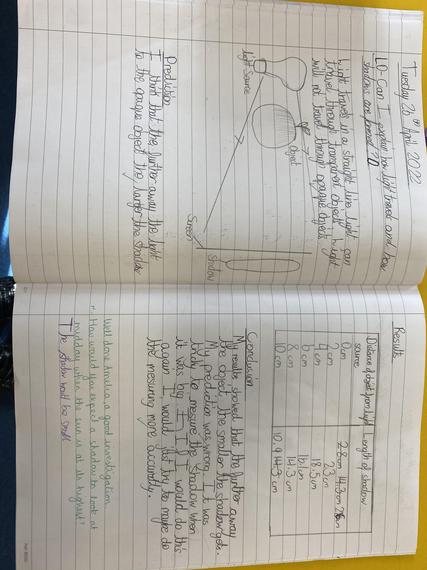 Tuesday 26th April 2022
LO-Can I explain how light travels and how
shadows are formed?
Light travels in a straight line. Light can
travel through transparent objects. Light
will not travel through opaque objects.
light source
eye
Object
Screen
Shadow
Prediction
I think that the further away the light
to the opaque object the larger the shadow
Results
Distance of object from light source
Length of shadow
0cm
2cm 23cm
4cm 18.5cm
6cm 16.1cm
8cm 14.3cm
10cm
Conclusion
My results showed that the further away
the object, the smaller the shadow gets.
My prediction was wrong.
it was big. If I would do this
again I would just try to
the mesuring more accuratly.
Well done Amelia, a good investigation.
How would you expect a shadow to look at
midday when the sun is at its highest?
The shadow would be small